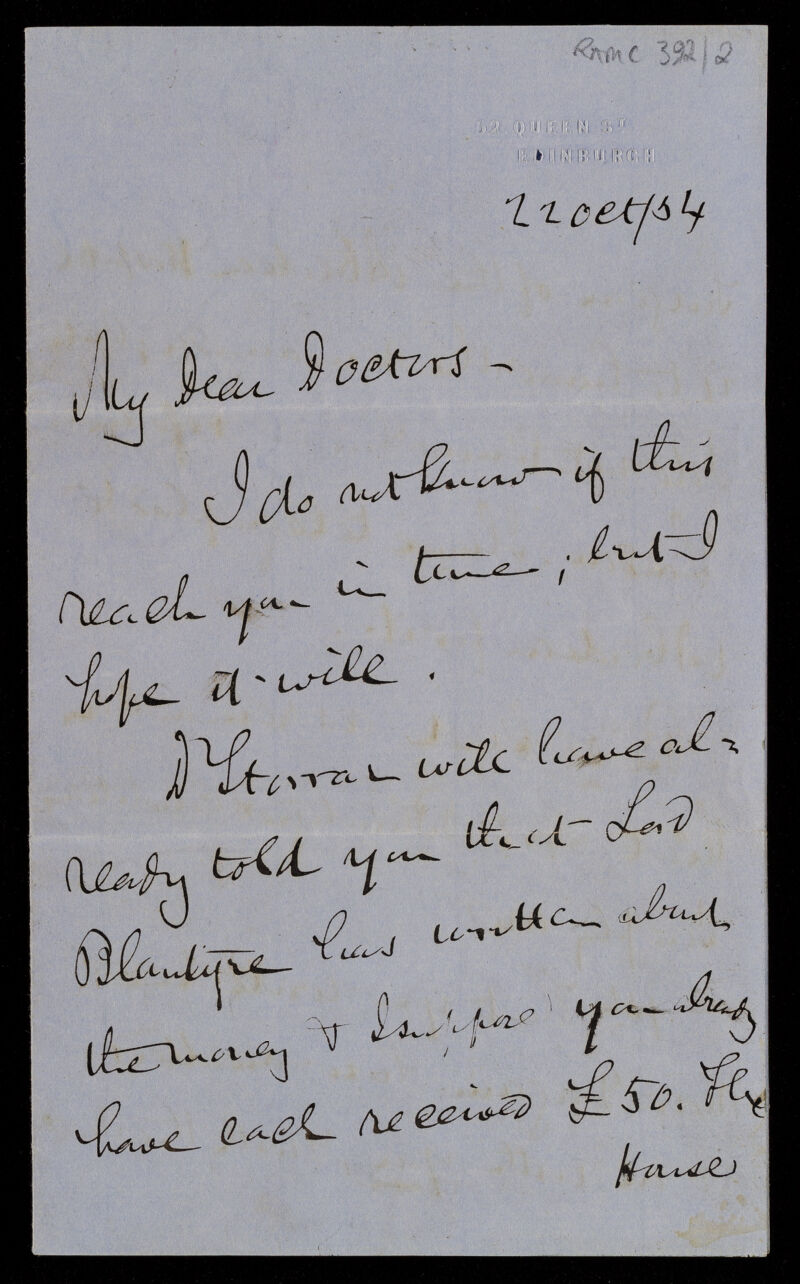 RAMC 392/2
52 QUEEN ST
EDINBURGH
22 Oct/54
My Dear Doctors -
I do not know if this
reach you in time; but I
hope it will.
Dr Storrar will have al=
ready told you that Lord
Blantyre has written about
the money & I suppose you already
have each received £50. The
House